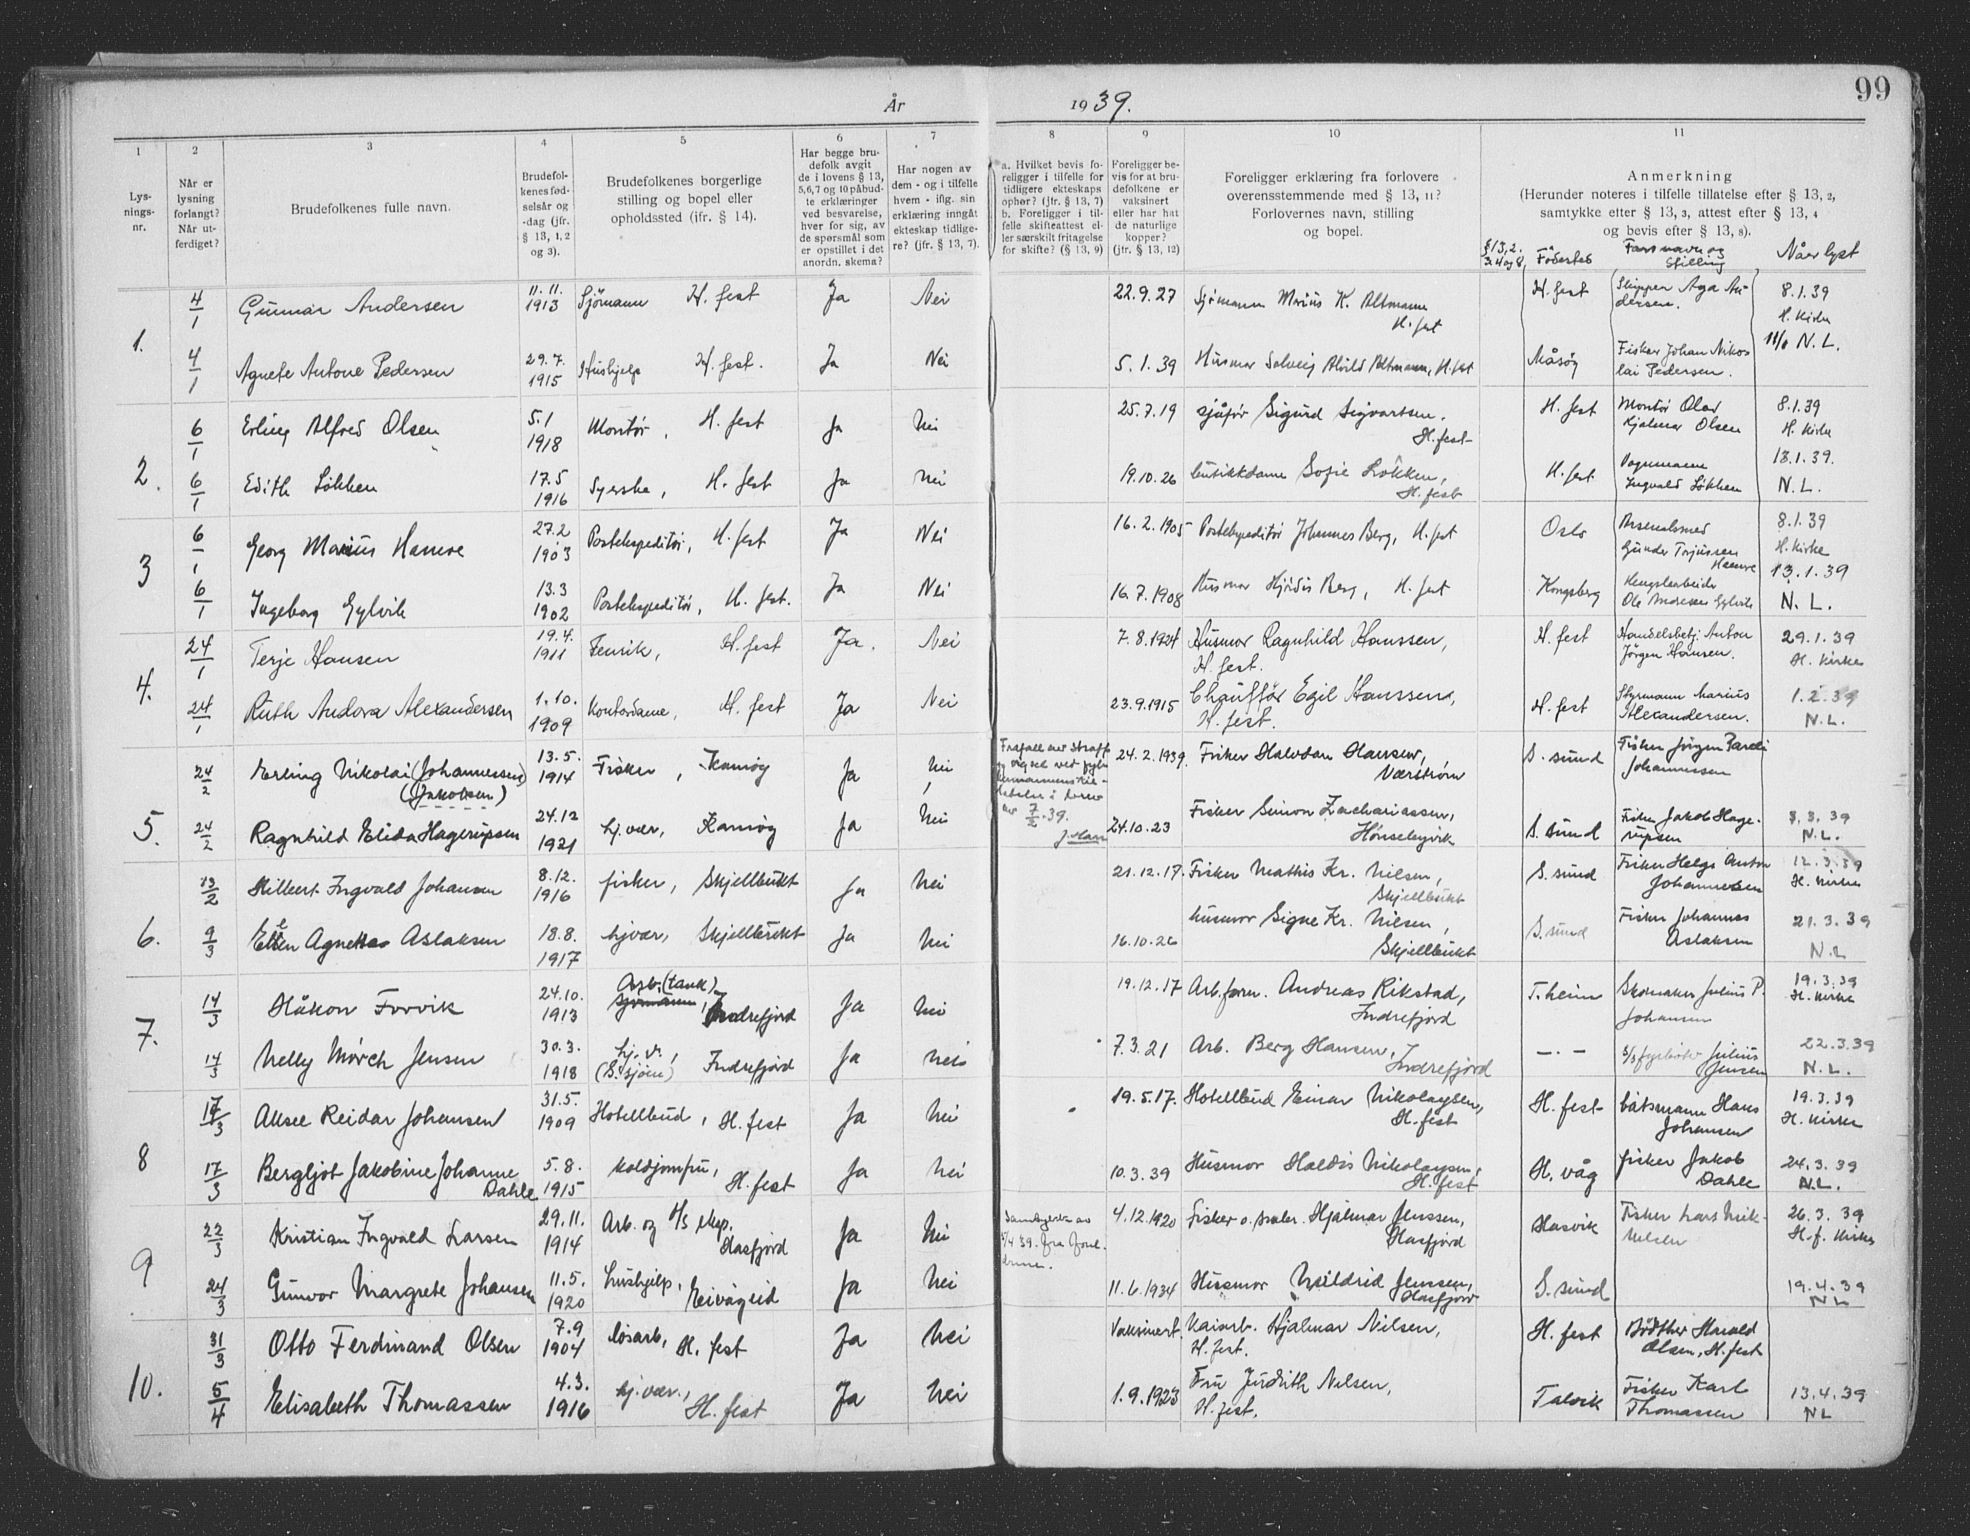 99
År 1939.
1 2 3 4 5 6 7 8 9 10 11
Lysningsnr.
Når er lysning forlangt? Når utferdiget?
Brudefolkenes fulle navn.
Brudefolkenes fødselsår og -dag (jfr. § 13, 1, 2 og 3).
Brudefolkenes borgerlige stilling og bopel eller opholdssted (jfr. § 14).
Har begge brudefolk avgitt de i lovens § 13, 5, 6, 7 og 10 påbudte erklæringer ved besvarelse, hver for sig, av de spørsmål som er opstillet i det anordn. skema?
Har nogen av dem - og i tilfelle hvem - iflg. sin erklæring inngått ekteskap tidligere? (jfr. § 13, 7).
a. Hvilket bevis foreligger i tilfelle for tidligere ekteskaps ophør? (jfr. § 13, 7) b. Foreligger i tilfelle skifteattest eller særskilt fritagelse for skifte? (§ 13, 9)
Foreligger bevis for at brudefolkene er vaksinert eller har hat de naturlige kopper? (jfr. § 13, 12)
Foreligger erklæring fra forlovere overensstemmende med § 13, 11? Forlovernes navn, stilling og bopel.
Anmerkning (Herunder noteres i tilfelle tillatelse efter § 13, 2, samtykke etter § 13, 3, attest efter § 13, 4 og bevis efter § 13, 8).
§ 13, 2. 3. 4 og 8 Födested Fars navn og Stilling Når lyst
1. 4/1 Gunnar Andersen 11.11. 1913 Sjømann H. fest Ja Nei 22.9.27 Sjømann Marius K. Altmann H. fest H. fest Skipper Aga Andersen. 8.1.39 H. Kirke
4/1 Agnete Antone Pedersen 29.7. 1915 Hushjelp H. fest. Ja Nei 5.1.39 Husmor Solveig Alvild Altmann, H. fest Måsøy Fisker Johan Nikolai Pedersen. 11/1 N.L.
2. 6/1 Erling Alfred Olsen 5.1 1918 Montør, H. fest Ja Nei 25.7.19 sjåfør Sigurd Sigvartsen. H. fest H. fest Montør Olav Hjalmar Olsen 8.1.39 H. Kirke
6/1 Edith Løkken 17.5 1916 Syerske, H. fest Ja Nei 19.10.26 butikkdame Sofie Løkken, H. fest H. fest Vognmann Ingvald Løkken 13.1.39. N.L.
3 6/1 Georg Marius Hamre 27.2 1903 Postekspeditør, H. fest Ja Nei 16.2.1905 Postekspeditør Johannes Berg, H. fest Oslo Arsenalsmed Gunder Torjussen Hamre 8.1.39 H. Kirke
6/1 Ingeborg Gylvik 13.3 1902 Postekspeditør, H. fest. Ja Nei 16.7.1908 Husmor Hjørdis Berg, H. fest Kongsberg Ole Andresen Gylvik 13.1.39 N.L.
4. 24/1 Terje Hansen 19.4. 1911 Fenrik, H. fest Ja. Nei 7.8.1924 Husmor Ragnhild Hanssen, H. fest. H. fest Handelsbetj. Anton Jørgen Hansen. 29.1.39 H. Kirke
24/1 Ruth Andora Alexandersen 1.10. 1909 Kontordame, H. fest Ja Nei 23.9.1915 Chauffør Egil Hanssen, H. fest. H. fest Styrmann Marius Alexandersen. 1.2.39 N.L.
5. 24/2 Erling Nikolai (Johannessen) (Jakobsen) 13.5. 1914 Fisker, Kamøy Ja Nei 24.2.1939. Fisker Halvdan Hansen, S. sund Fisker Jørgen Johannessen
24/2 Ragnhild Elida Hagerupsen 24.12 1921 hj. vær, Kamøy Ja Nei 7/2.39. 24.10.23 Fisker Simon Zachariassen, Hønsebyvik S. sund Fisker Jakob Hagerupsen 8.3.39 N.L.
6. 13/2 Hilbert Ingvald Johansen 8.12. 1916 fisker, Skjellbukt Ja Nei 21.12.17. Fisker Mathis Kr. Nilsen, Skjellbukt S. sund Fisker Helge Anton Johannesen 12.3.39 H. Kirke
9/3 Ellen Agnethe Aslaksen 18.8. 1917 hj. vær, Skjellbukt Ja Nei 16.10.26 husmor Signe Kr. Nilsen, Skjellbukt S. sund Fisker Johannes Aslaksen 21.3.39 N.L
7. 14/3 Håkon Forvik 24.10. 1913 Arb. (tank) sjømann, Indrefjord Ja Nei 19.12.17 Arb. form. Andreas Rikstad, Indrefjord T.heim Skomaker Julius P. Johansen 19.3.39 H. Kirke
14/3 Nelly Mørch Jensen 30.3. 1918 hj. v., (S. sjøen) Indrefjord Ja Nei 7.3.21 Arb. Berg Hansen, Indrefjord —.— Julius Jensen 22.3.39 N.L.
8 17/3 Aksel Reidar Johansen 31.5. 1909 Hotellbud, H. fest Ja Nei 19.5.17. Hotellbud Einar Nikolaysen, H. fest H. fest båtsmann Hans Johansen 19.3.39 H. Kirke
17/3 Bergljot Jakobine Johanne Dahle 5.8. 1915 koldjomfru, H. fest Ja Nei 10.3.39 Husmor Haldis Nikolaysen, H. fest H. våg fisker Jakob Dahle 24.3.39 N.L.
9 22/3 Kristian Ingvald Larsen 29.11. 1914 Arb. og d/s eksp. Hasfjord Ja Nei Samtykke av 5/4.39. fra foreldrene. 4.12.1920 Fisker o. Hjalmar Jenssen, Hasfjord Hasvik Fisker Lars Nilsen 26.3.39 H.f. Kirke
24/3 Gunvor Margrete Johansen 11.5. 1920 hushjelp, Eivågeid Ja Nei 11.6.1934 Husmor Mildrid Jenssen, Hasfjord S. sund 19.4.39 NL
10. 31/3 Otto Ferdinand Olsen 7.9 1904 løsarb, H. fest Ja Nei Vaksinert. Kaiarb. Hjalmar Nilsen, H. fest. H. fest Bødtker Harald Olsen, H. fest
5/4 Elisabeth Thomassen 4.3. 1916 hj. vær., H. fest Ja Nei 1.9.1923 Fru Judith Nilsen, H. fest. Talvik Fisker Karl Thomassen 13.4.39 NL